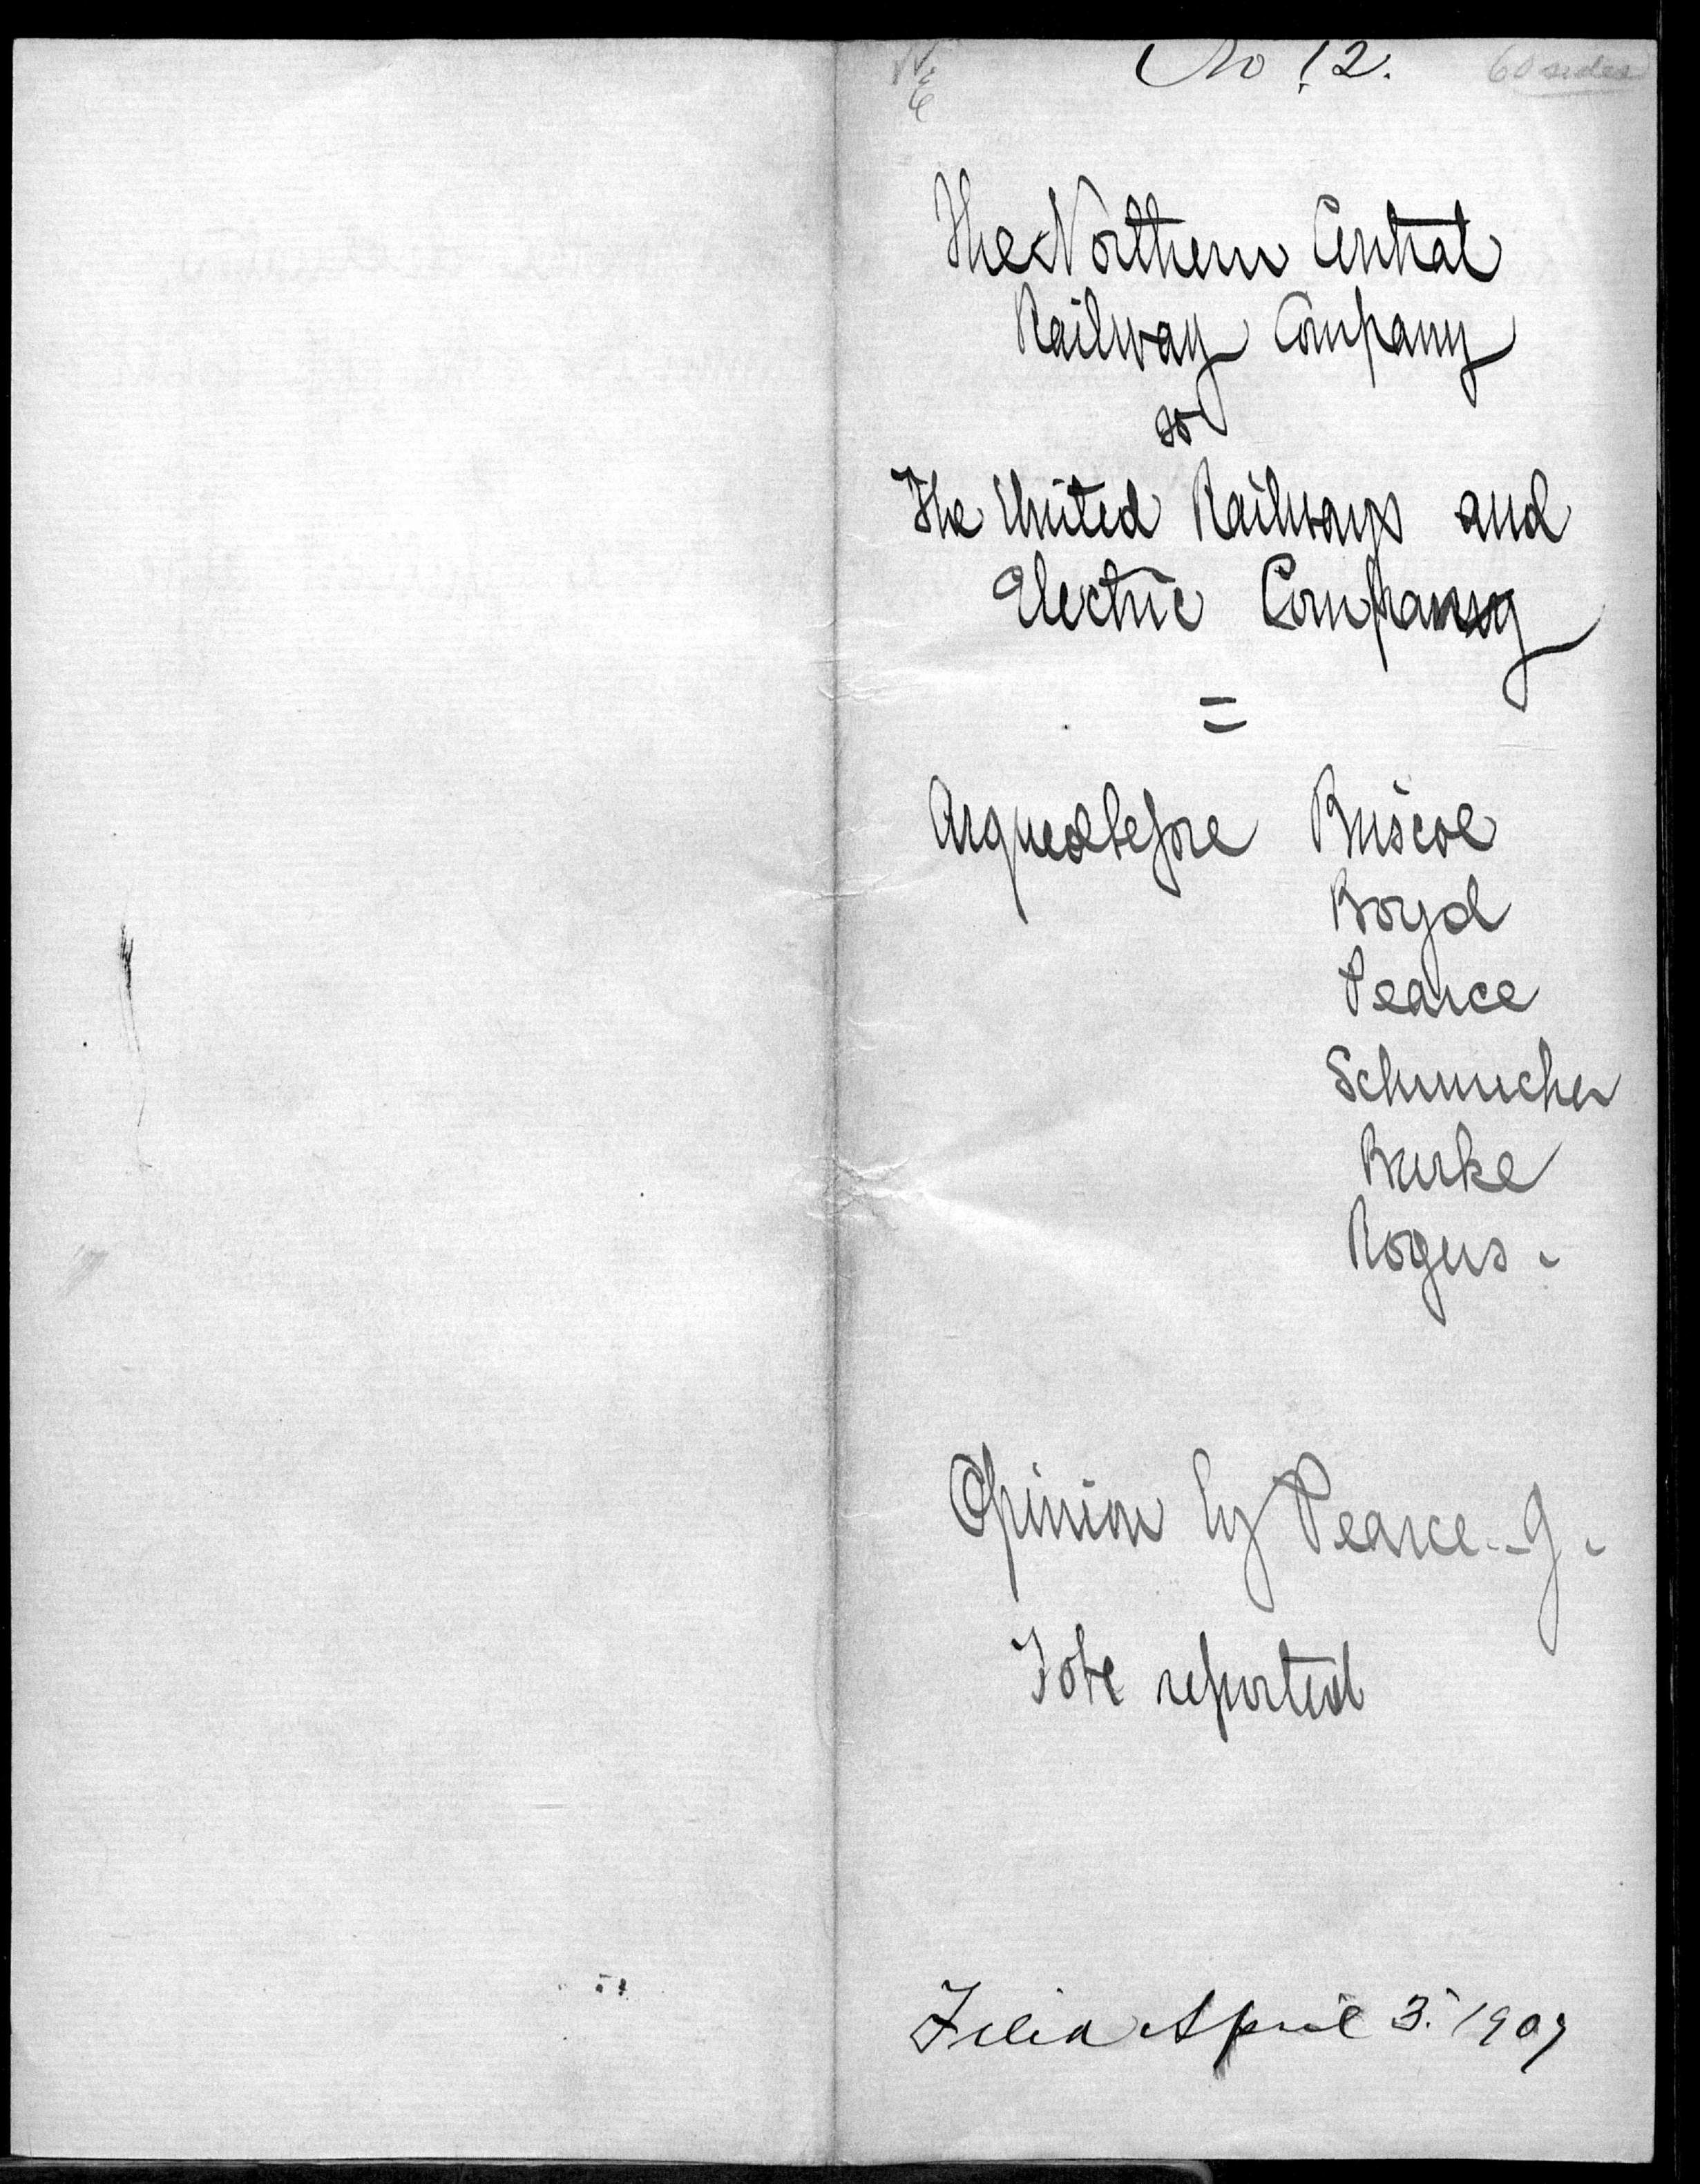 No 12.
60 sides
The Northern Central
Railway Company
vs
The United Railways and
Electric Company
=
Argued before Briscoe
Boyd
Pearce
Schmucker
Burke
Rogers.
Opinion by Pearce. J.
To be reported
Filed April 3. 1907